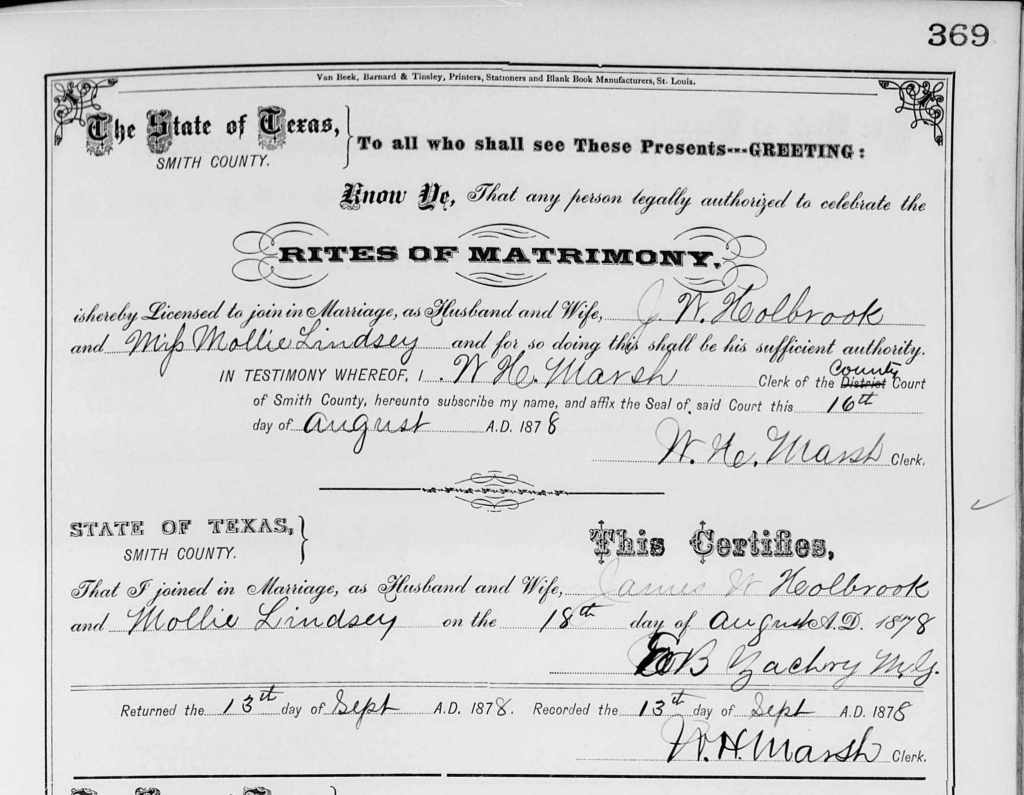 369
Van Beek, Barnard & Tinsley, Printers, Stationers and Blank Book Manufacturers, St. Louis.
The State of Texas,
SMITH COUNTY.
To all who shall see These Presents---GREETING:
Know Ye, That any person legally authorized to celebrate the
RITES OF MATRIMONY,
is hereby Licensed to join in Marriage, as Husband and Wife, J. W. Holbrook
and Miss Mollie Lindsey and for so doing this shall be his sufficient authority.
IN TESTIMONY WHEREOF, I W. H. Marsh Clerk of the District County Court
of Smith County, hereunto subscribe my name, and affix the Seal of said Court this 16th
day of August A.D. 1878
W. H. Marsh Clerk.
STATE OF TEXAS,
SMITH COUNTY.
This Certifies,
That I joined in Marriage, as Husband and Wife, James W Holbrook
and Mollie Lindsey on the 18th day of August A.D. 1878
B Zachry M.G.
Returned the 13th day of Sept A.D. 1878. Recorded the 13th day of Sept A.D. 1878
W. H. Marsh Clerk.